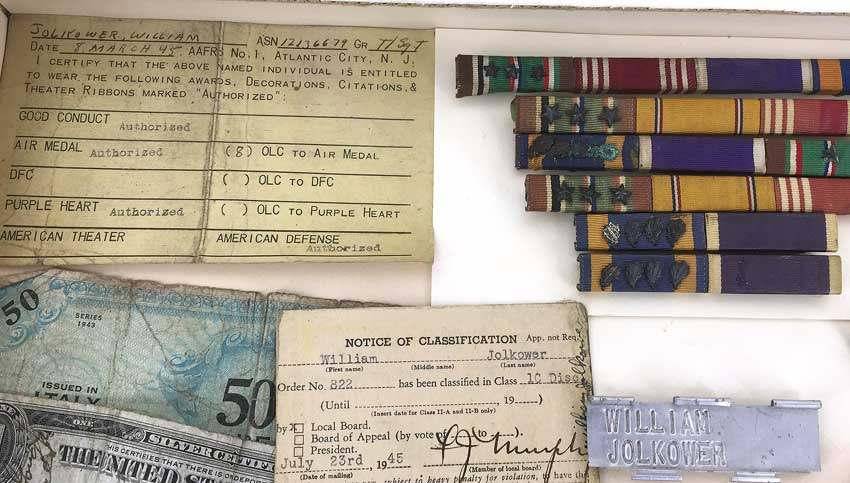 JOLKOWER, WILLIAM ASN 12136679 GR T/SGT
DATE 8 MARCH 45 AAFRS No. 1, ATLANTIC CITY, N. J.
I CERTIFY THAT THE ABOVE NAMED INDIVIDUAL IS ENTITLED
TO WEAR THE FOLLOWING AWARDS, DECORATIONS, CITATIONS, &
THEATER RIBBONS MARKED "AUTHORIZED":
GOOD CONDUCT Authorized
AIR MEDAL Authorized (8) OLC TO AIR MEDAL
DFC ( ) OLC TO DFC
PURPLE HEART Authorized ( ) OLC TO PURPLE HEART
AMERICAN THEATER AMERICAN DEFENSE
Authorized
50
SERIES
1943
ISSUED IN
ITALY
50
ONE
SILVER CERTIFICATE
THIS CERTIFIES THAT THERE
THE UNITED
NOTICE OF CLASSIFICATION App. not Req.
William Jolkower
(First name) (Middle name) (Last name)
Order No. 822 has been classified in Class 1C Disc
(Until , 19 )
(Insert date for Class II-A and II-B only)
by Local Board.
Board of Appeal (by vote of to ).
President.
July 23rd, 1945
(Date of mailing) (Member of local board)
subject to heavy penalty for violation, to have
WILLIAM
JOLKOWER